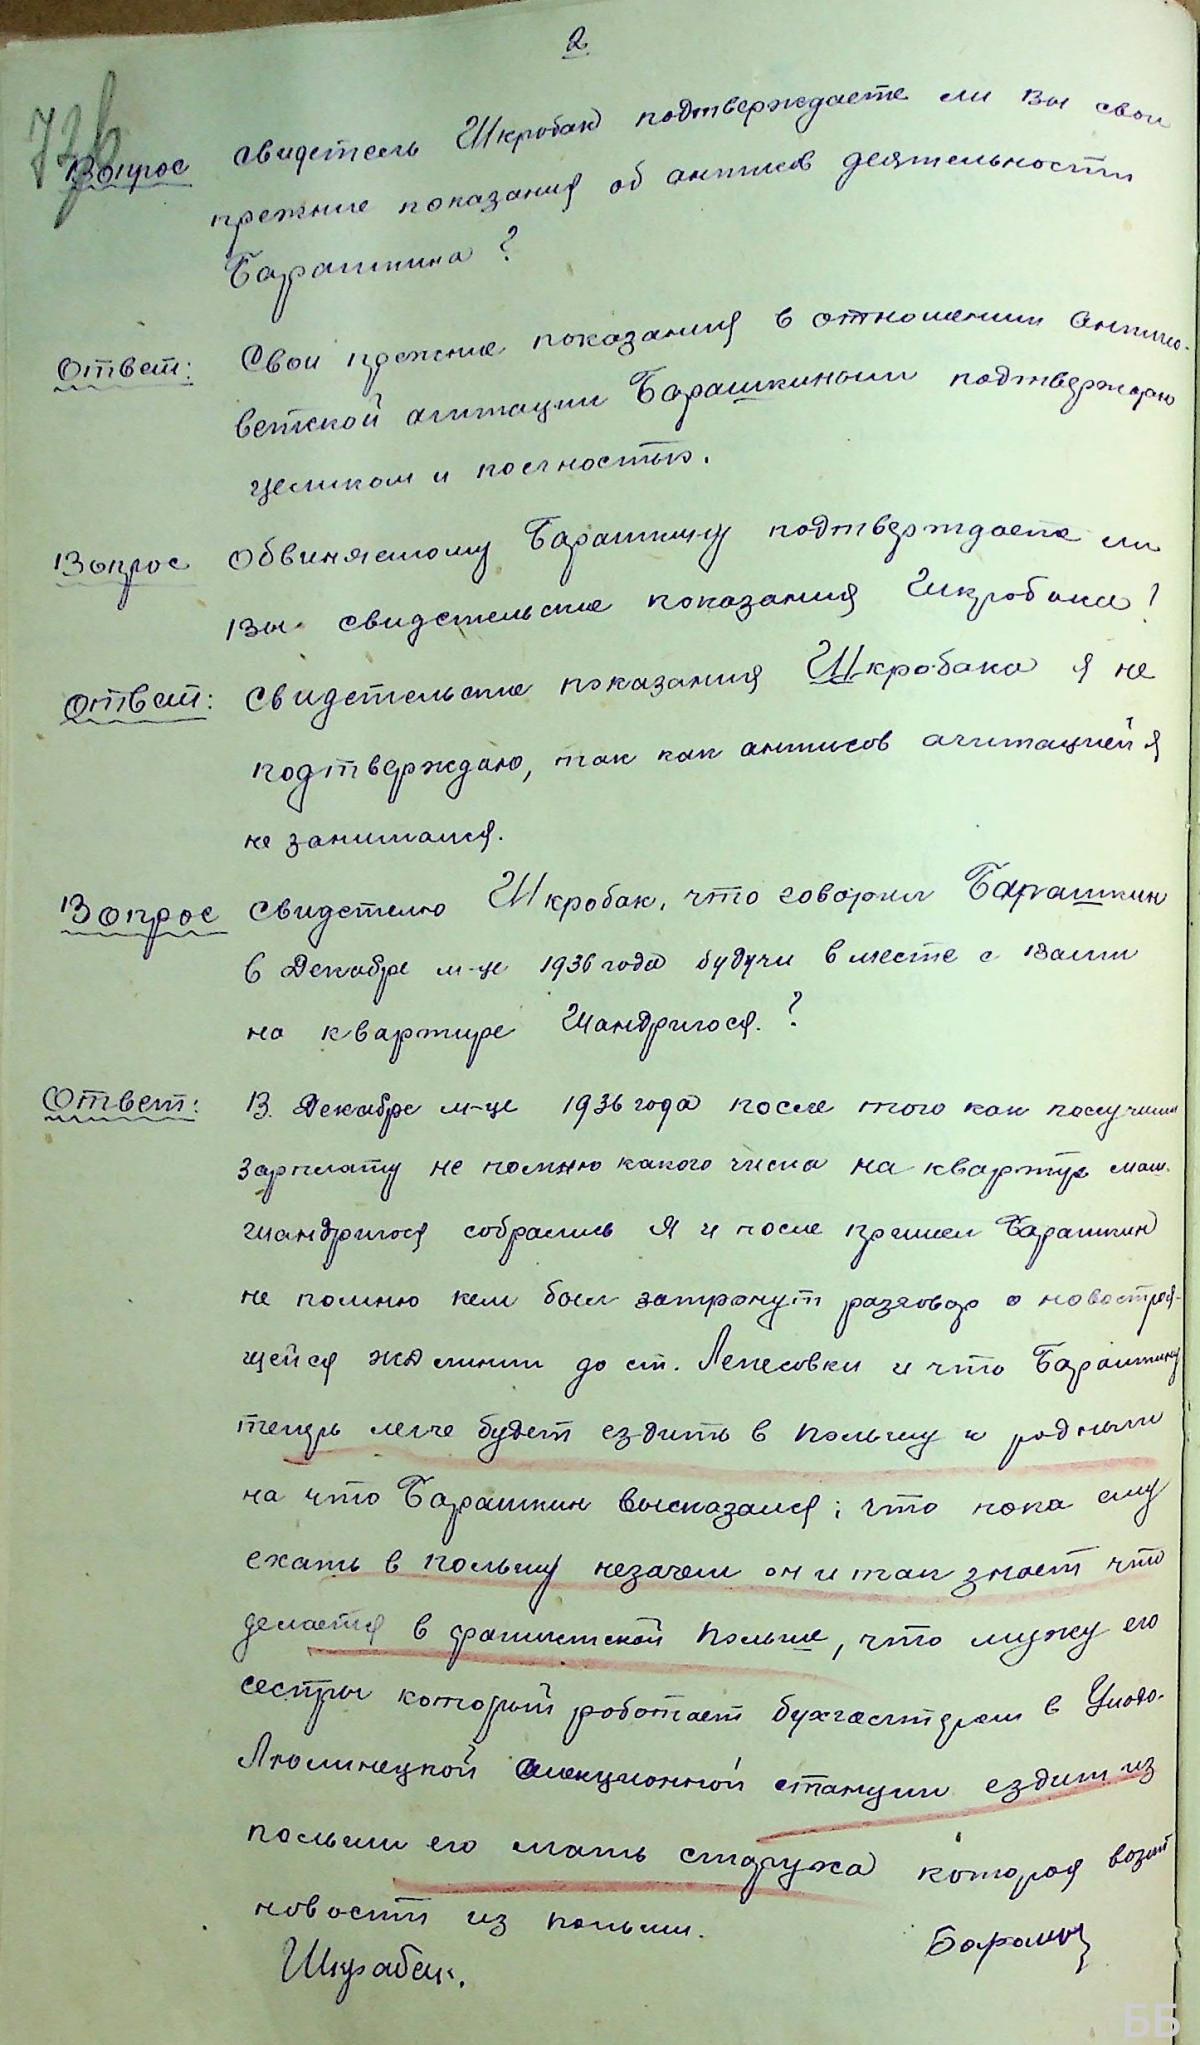 2
Вопрос свидетель Шкробак подтверждаете ли Вы свои
прежние показания об антисов деятельности
Барашкина?
Ответ: Свои прежние показания в отношении антисо-
ветской агитации Барашкиным подтверждаю
целиком и полностью.
Вопрос Обвиняемому Барашкину подтверждаете ли
Вы свидетельские показания Шкробака?
Ответ: Свидетельские показания Шкробака я не
подтверждаю, так как антисов агитацией я
не занимался.
Вопрос Свидетелю Шкробак, что говорил Барашкин
в Декабре м-це 1936 года будучи вместе с Вами
на квартире Шандригося.?
Ответ: В. Декабре м-це 1936 года после того как получили
зарплату не помню какого числа на квартире
Шандригося собрались я и после пришел Барашкин
не помню кем был затронут разговор о новострою-
щейся жд линии до ст. Лепесовки и что Барашкину
теперь легче будет ездить в Польшу к родным
на что Барашкин высказался; что пока ему
ехать в Польшу незачем он и так знает что
делается в фашистской Польше, что мужу его
сестры который работает бухгалтером в Уладо-
Люлинецкой селекционной станции ездит из
польши его мать старуха которая возит
новости из польши.
Шкрабак.
ББ